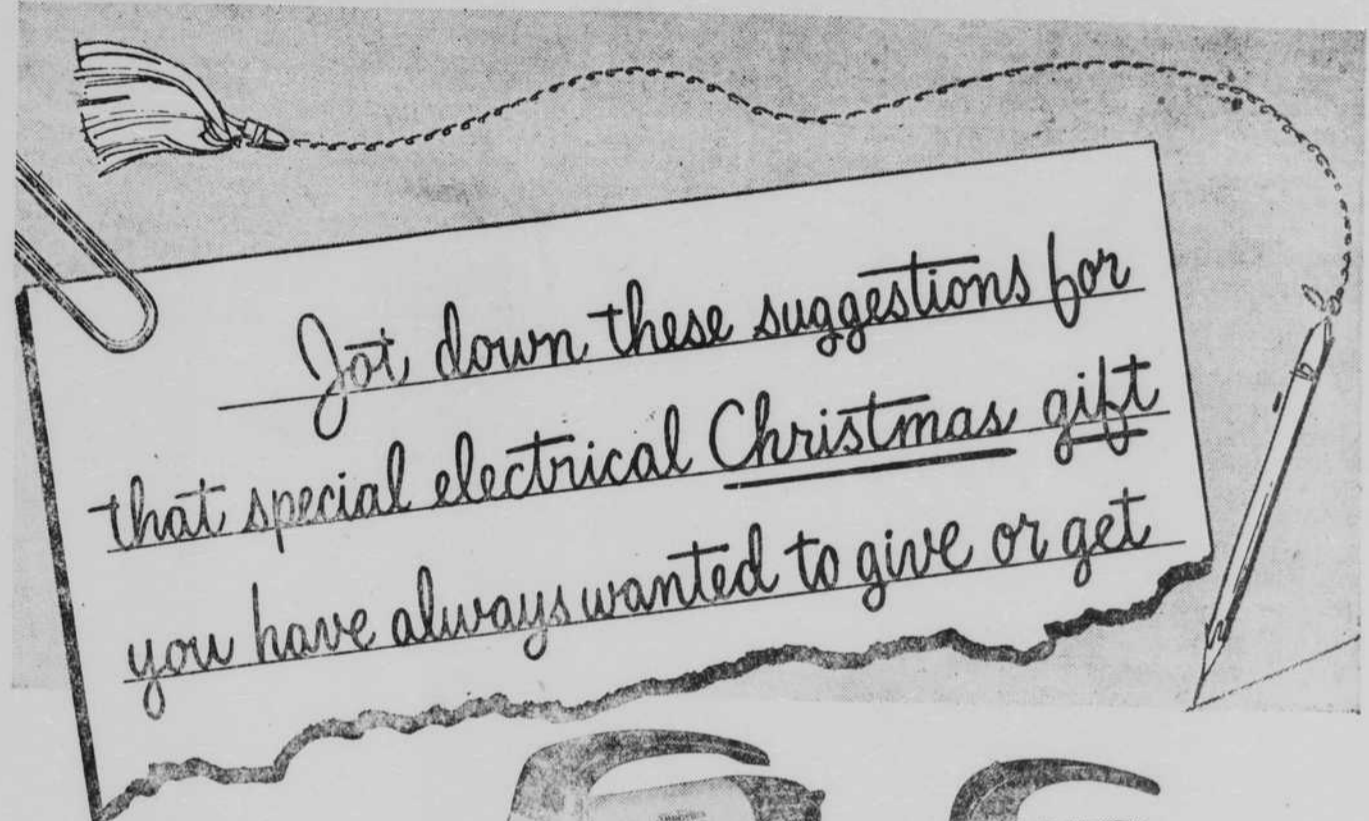 Jot down these suggestions for
that special electrical Christmas gift
you have always wanted to give or get